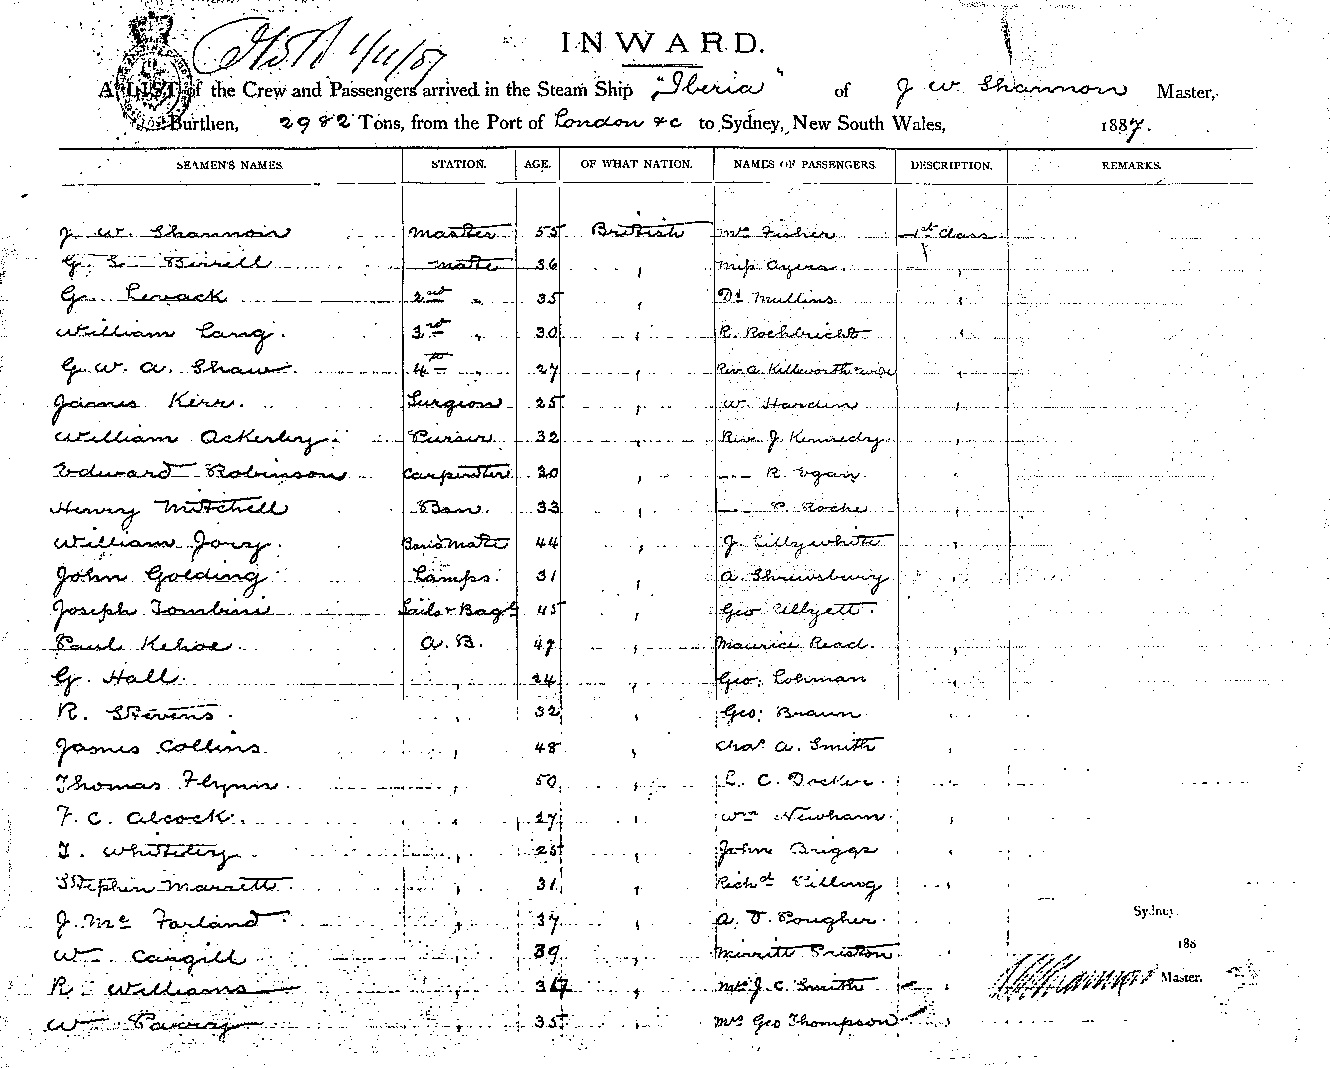 1/11/87
INWARD.
A LIST of the Crew and Passengers arrived in the Steam Ship "Iberia" of J W Shannon Master,
Burthen, 2982 Tons, from the Port of London &c to Sydney, New South Wales, 1887.
SEAMEN'S NAMES. STATION. AGE. OF WHAT NATION. NAMES OF PASSENGERS. DESCRIPTION. REMARKS.
J. W. Shannon Master 55 British Mrs Fisher 1st Class
G. S. Birrell Mate 36 " Miss Ayers "
G. Levack 2nd " 35 " Dr Mullins "
William Lang. 3rd " 30 " R. "
G. W. A. Shaw. 4th " 27 " Rev. A. Killworth & wife "
James Kerr. Surgeon 25 " W. Harden "
William Ackerley. Purser 32 " Rev. J. Kennedy "
Edward Robinson Carpenter 30 " --- R. Egan "
Henry Mitchell Bsn. 33 " --- P. Roche "
William Jory. Bsn's Mate 44 " J. Lillywhite "
John Golding Lamps. 31 " A. Shrewsbury "
Joseph Tombini Sails & Bagg 45 " Geo Ullyett. "
Paul Kehoe. A. B. 47 " Maurice Read. "
G. Hall. " 24 " Geo: Lohman "
R. Stevens. " 32 " Geo: Braun "
James Collins " 48 " Chas A. Smith "
Thomas Flynn. " 50 " L. C. Docker. "
F. C. Alcock. " 27 " Wm Newham. "
T. Whiteley. " 25 " John Briggs "
Stephen Marrett. " 31 " Richd Pilling "
J. Mc Farland. " 37 " A. D. Pougher. " Sydney.
Wm Cargill " 39 " Merritt Preston. " 188
R. Williams " " Mrs J. C. Smith " J W Shannon Master.
Wm Parry " 35 " Mrs Geo Thompson "